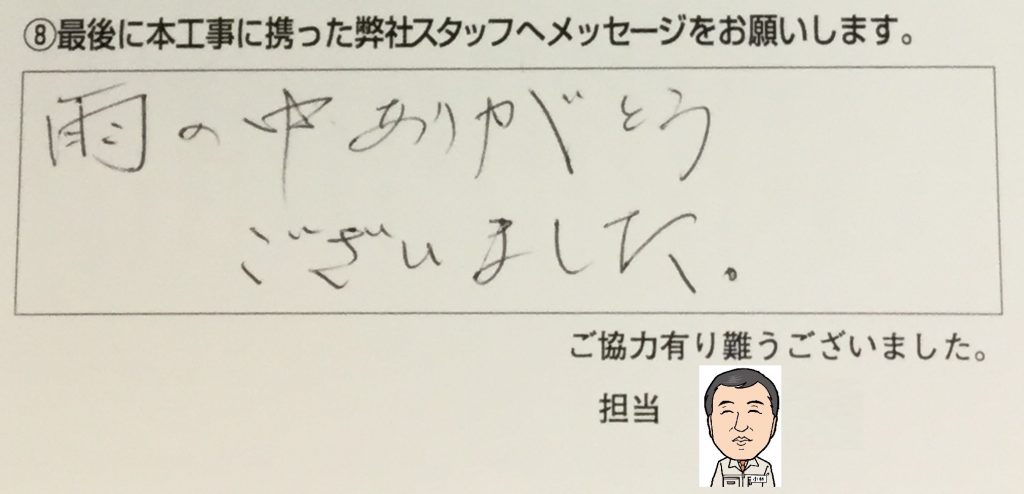 ⑧最後に本工事に携った弊社スタッフへメッセージをお願いします。
雨の中ありがとう
ございました。
ご協力有り難うございました。
担当